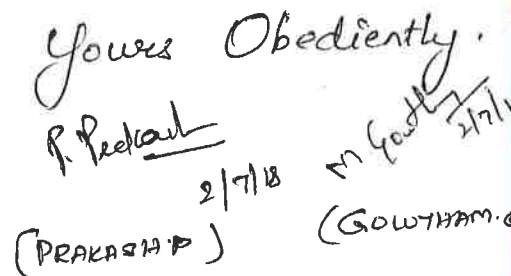 Yours Obediently.
P. Prakash
2/7/18 2/7/1
(PRAKASH.P) (GOWTHAM.